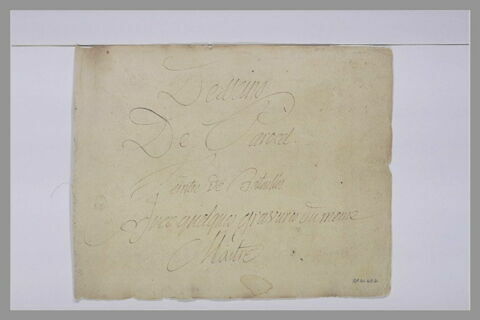 Desseins
De Parocel
Peintre de Batailles
Avec quelques gravures du meme
Maitre